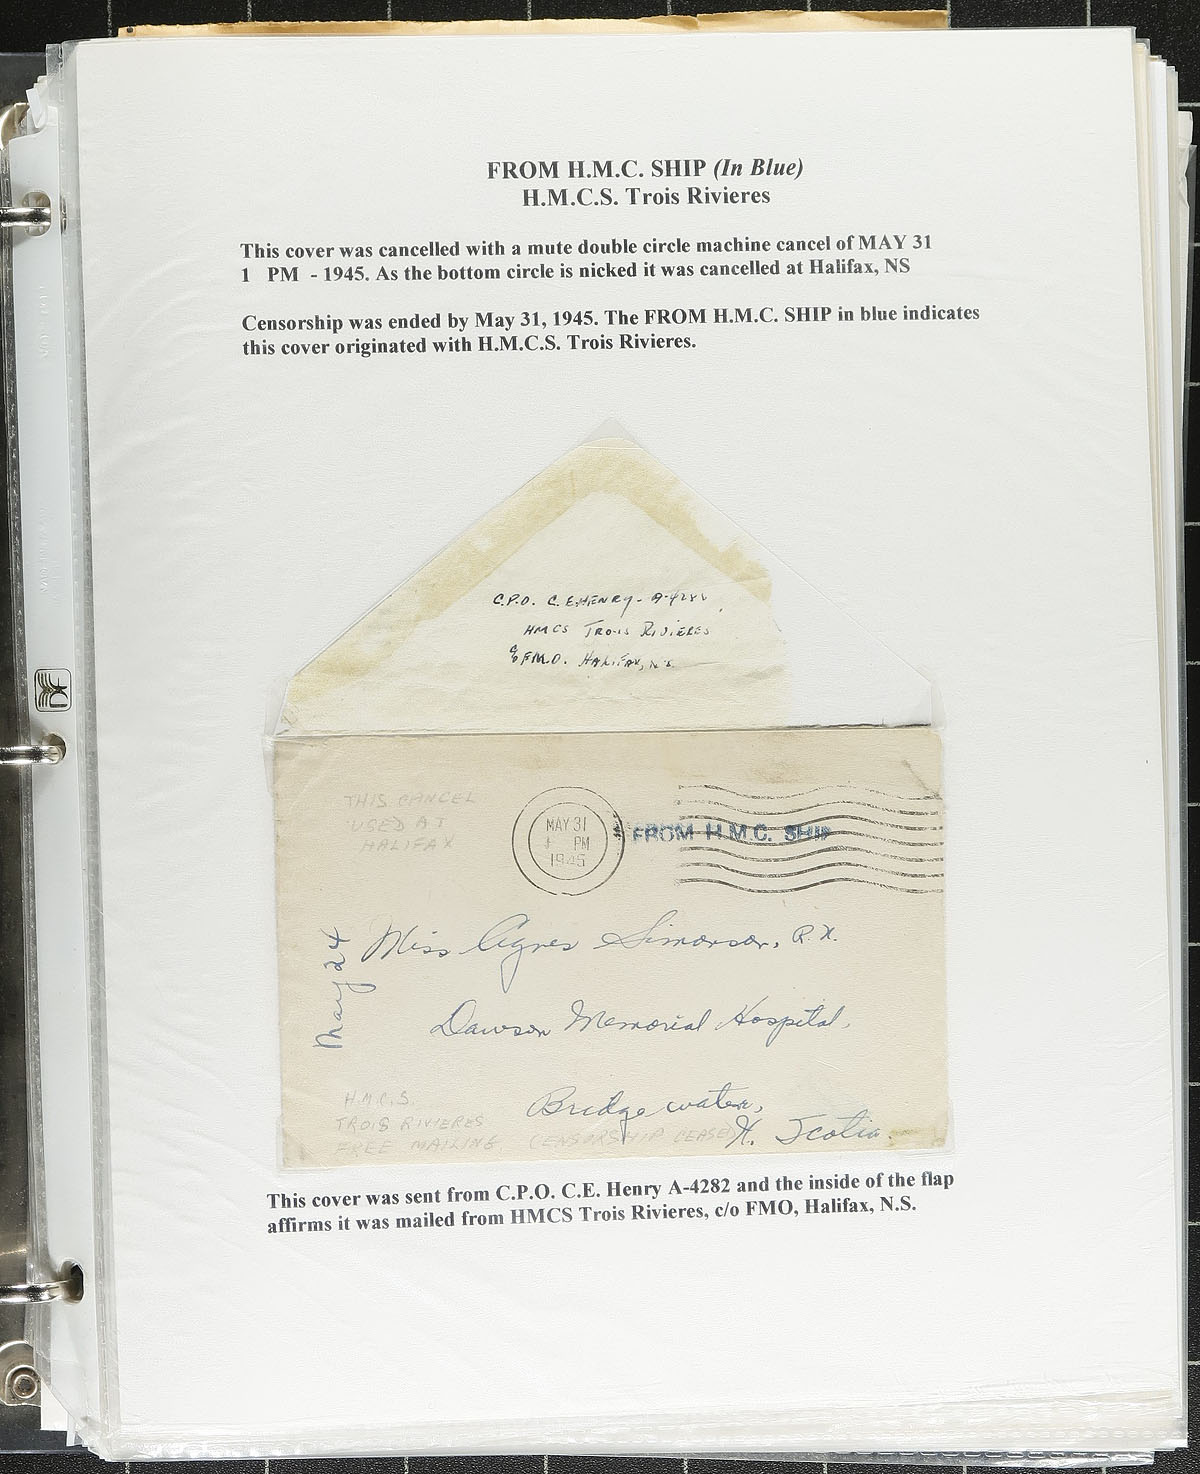 FROM H.M.C. SHIP (In Blue)
H.M.C.S. Trois Rivieres
This cover was cancelled with a mute double circle machine cancel of MAY 31
1 PM - 1945. As the bottom circle is nicked it was cancelled at Halifax, NS
Censorship was ended by May 31, 1945. The FROM H.M.C. SHIP in blue indicates
this cover originated with H.M.C.S. Trois Rivieres.
C.P.O. C.E. HENRY - A-4282
HMCS TROIS RIVIERES
c/o F.M.O. HALIFAX, N.S.
THIS CANCEL
USED AT
HALIFAX
MAY 31
1 PM
1945
FROM H.M.C. SHIP
May 24
Miss Agnes Simonson, R.N.
Dawson Memorial Hospital,
Bridgewater,
N. Scotia.
H.M.C.S.
TROIS RIVIERES
FREE MAILING (CENSORSHIP CEASED)
This cover was sent from C.P.O. C.E. Henry A-4282 and the inside of the flap
affirms it was mailed from HMCS Trois Rivieres, c/o FMO, Halifax, N.S.